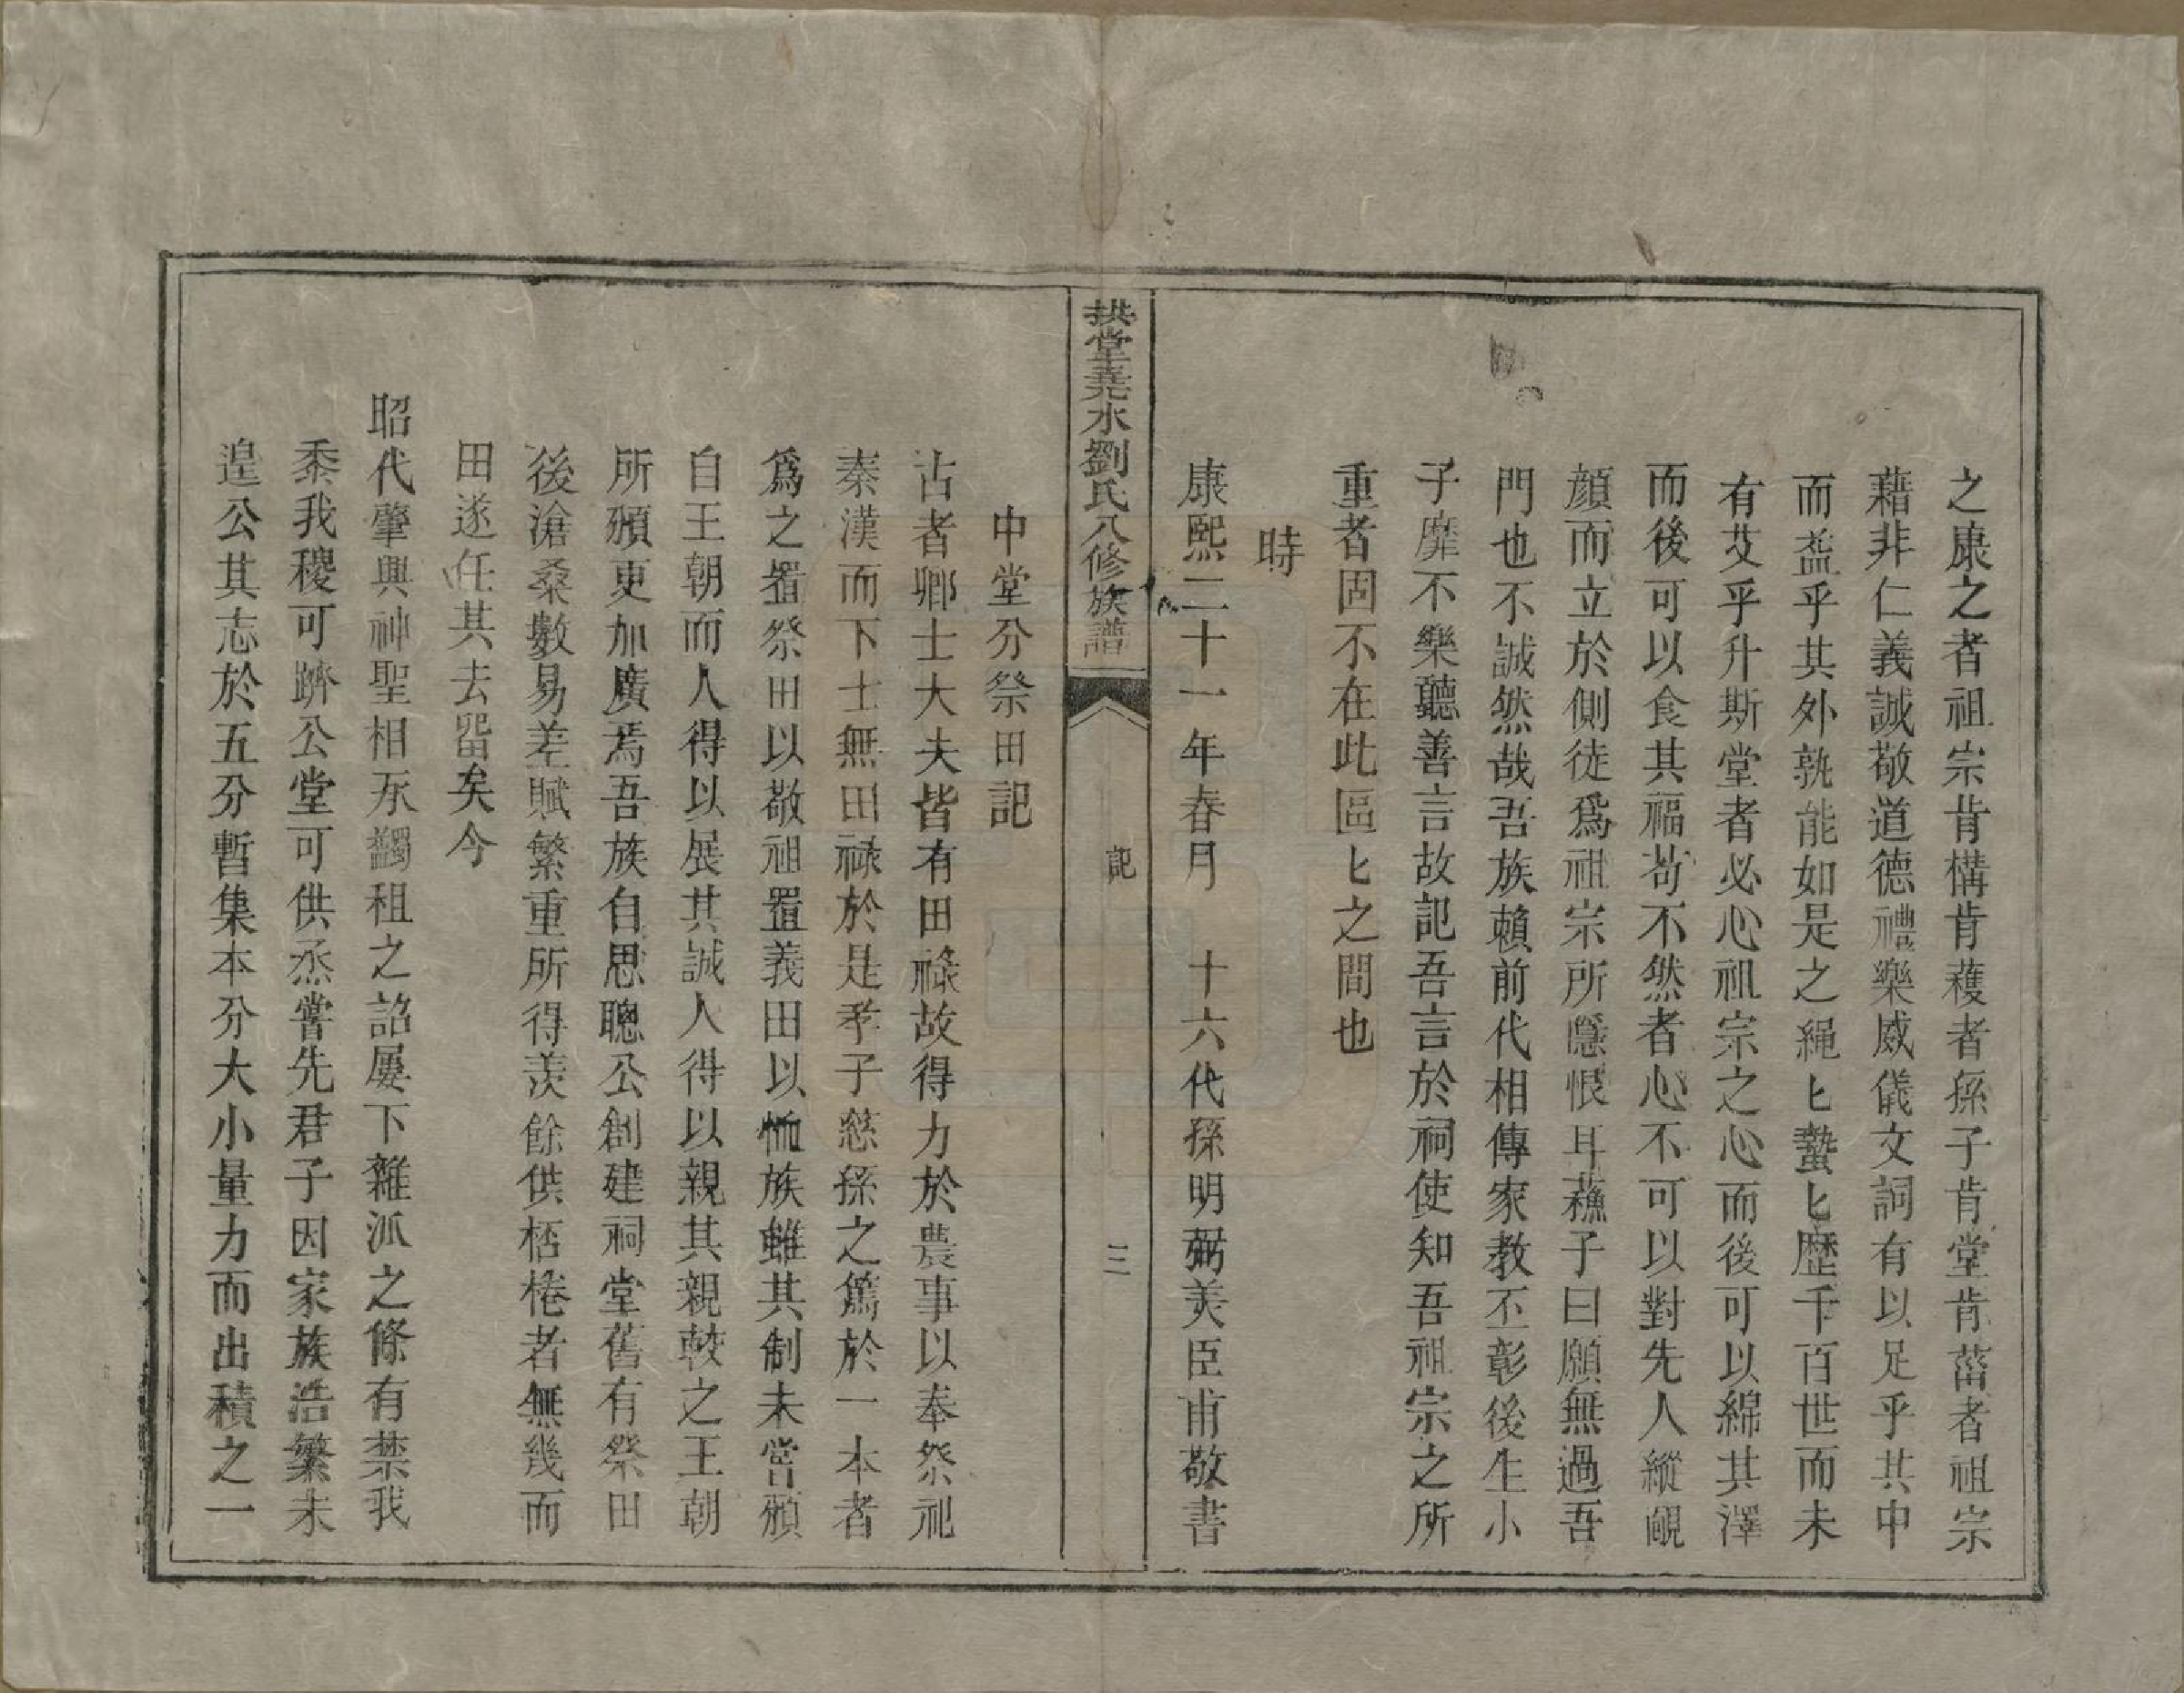 之康之者祖宗肯構肯穫者孫子肯堂肯菑者祖宗
藉非仁義誠敬道德禮樂威儀文詞有以足乎其中
而盎乎其外孰能如是之繩匕蟄匕歷千百世而未
有艾乎升斯堂者必心祖宗之心而後可以綿其澤
而後可以食其福苟不然者心不可以對先人縱靦
顔而立於側徒爲祖宗所隱恨耳蘓子曰願無過吾
門也不誠然哉吾族賴前代相傳家教丕彰後生小
子靡不樂聽善言故記吾言於祠使知吾祖宗之所
重者固不在此區匕之間也
時
康熙二十一年春月 十六代孫明弼美臣甫敬書
拱堂堯水劉氏八修族譜 記 三
中堂分祭田記
古者卿士大夫皆有田祿故得力於農事以奉祭祀
秦漢而下士無田祿於是孝子慈孫之篤於一本者
爲之置祭田以敬祖置義田以恤族雖其制未嘗頒
自王朝而人得以展其誠人得以親其親較之王朝
所頒更加廣焉吾族自思聰公創建祠堂舊有祭田
後滄桑數易差賦繁重所得羡餘供桮棬者無幾而
田遂任其去畱矣今
昭代肇興神聖相承蠲租之詔屢下雜派之條有禁我
黍我稷可躋公堂可供烝嘗先君子因家族浩繁未
遑公其志於五分暫集本分大小量力而出積之一